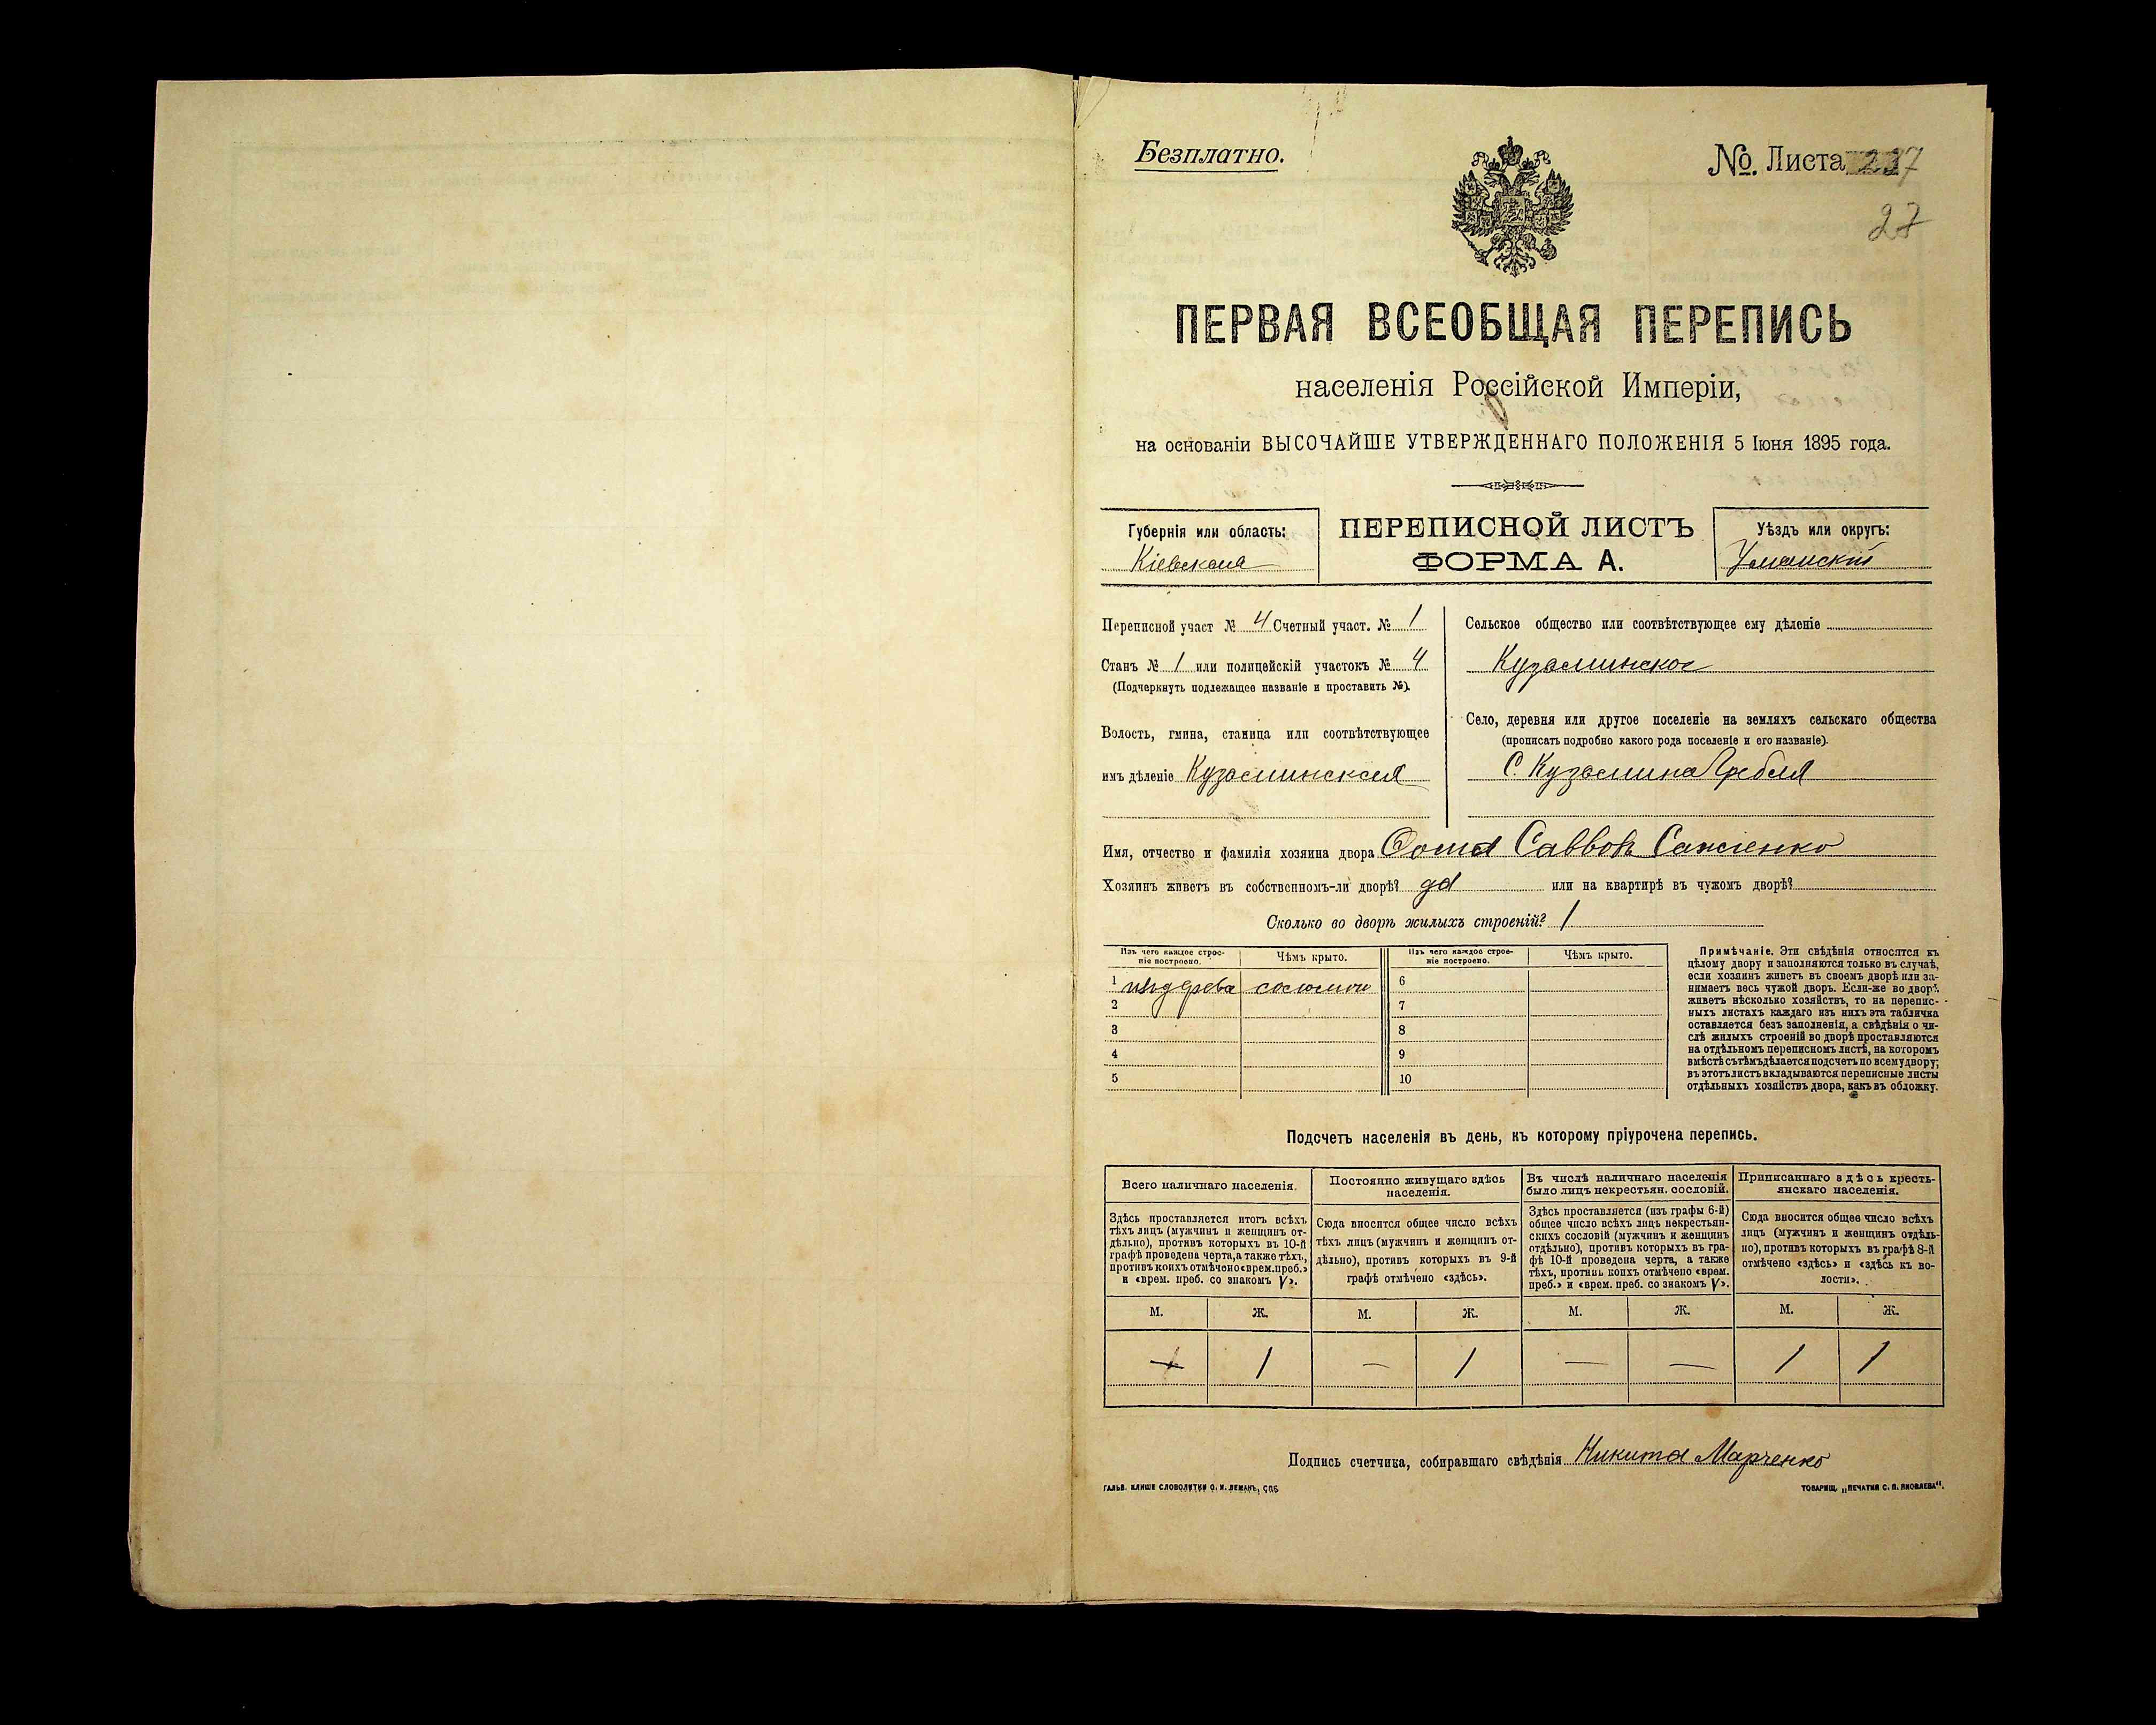 Безплатно.
№. Листа 227
27
ПЕРВАЯ ВСЕОБЩАЯ ПЕРЕПИСЬ
населенія Россійской Имперіи,
на основаніи ВЫСОЧАЙШЕ УТВЕРЖДЕННАГО ПОЛОЖЕНІЯ 5 Іюня 1895 года.
Губернія или область:
Кіевская
ПЕРЕПИСНОЙ ЛИСТЪ
ФОРМА А.
Уѣздъ или округъ:
Уманскій
Переписной участ № 4 Счетный участ. № 1
Станъ № 1 или полицейскій участокъ № 4
(Подчеркнуть подлежащее названіе и проставить №).
Волость, гмина, станица или соотвѣтствующее
имъ дѣленіе Кузьминская
Сельское общество или соотвѣтствующее ему дѣленіе
Кузьминское
Село, деревня или другое поселеніе на земляхъ сельскаго общества
(прописать подробно какого рода поселеніе и его названіе).
С. Кузьмина Гребля
Имя, отчество и фамилія хозяина двора Фома Саввовъ
Хозяинъ живетъ въ собственномъ-ли дворѣ? да или на квартирѣ въ чужомъ дворѣ?
Сколько во дворѣ жилыхъ строеній? 1
Изъ чего каждое строе-
ніе построено.
Чѣмъ крыто.
Изъ чего каждое строе-
ніе построено.
Чѣмъ крыто.
1 изъ дерева соломою
2
3
4
5
6
7
8
9
10
Примѣчаніе. Эти свѣдѣнія относятся къ
цѣлому двору и заполняются только въ случаѣ,
если хозяинъ живетъ въ своемъ дворѣ или за-
нимаетъ весь чужой дворъ. Если-же во дворѣ
живетъ нѣсколько хозяйствъ, то на перепис-
ныхъ листахъ каждаго изъ нихъ эта табличка
оставляется безъ заполненія, а свѣдѣнія о чи-
слѣ жилыхъ строеній во дворѣ проставляются
на отдѣльномъ переписномъ листѣ, на которомъ
вмѣстѣ съ тѣмъ дѣлается подсчетъ по всему двору;
въ этотъ листъ вкладываются переписные листы
отдѣльныхъ хозяйствъ двора, какъ въ обложку.
Подсчетъ населенія въ день, къ которому пріурочена перепись.
Всего наличнаго населенія.
Здѣсь проставляется итогъ всѣхъ
тѣхъ лицъ (мужчинъ и женщинъ от-
дѣльно), противъ которыхъ въ 10-й
графѣ проведена черта, а также тѣхъ,
противъ коихъ отмѣчено «врем. преб.»
и «врем. преб. со знакомъ V».
Постоянно живущаго здѣсь
населенія.
Сюда вносится общее число всѣхъ
тѣхъ лицъ (мужчинъ и женщинъ от-
дѣльно), противъ которыхъ въ 9-й
графѣ отмѣчено «здѣсь».
Въ числѣ наличнаго населенія
было лицъ некрестьян. сословій.
Здѣсь проставляется (изъ графы 6-й)
общее число всѣхъ лицъ некрестьян-
скихъ сословій (мужчинъ и женщинъ
отдѣльно), противъ которыхъ въ гра-
фѣ 10-й проведена черта, а также
тѣхъ, противъ коихъ отмѣчено «врем.
преб.» и «врем. преб. со знакомъ V».
Приписаннаго здѣсь кресть-
янскаго населенія.
Сюда вносится общее число всѣхъ
лицъ (мужчинъ и женщинъ отдѣль-
но), противъ которыхъ въ графѣ 8-й
отмѣчено «здѣсь» и «здѣсь къ во-
лости».
М. Ж. М. Ж. М. Ж. М. Ж.
— 1 — 1 — — 1 1
Подпись счетчика, собиравшаго свѣдѣнія Никита Марченко
ГАЛЬВ. КЛИШЕ СЛОВОЛИТНИ О. И. ЛЕМАНЪ, СПБ
ТОВАРИЩ. „ПЕЧАТНЯ С. П. ЯКОВЛЕВА“.